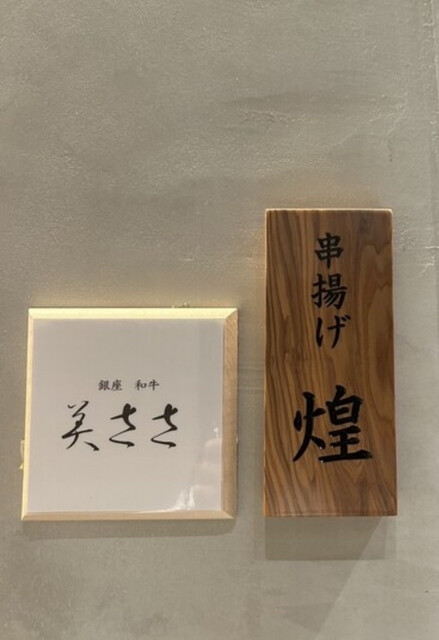 銀座 和牛
美ささ
串揚げ
煌